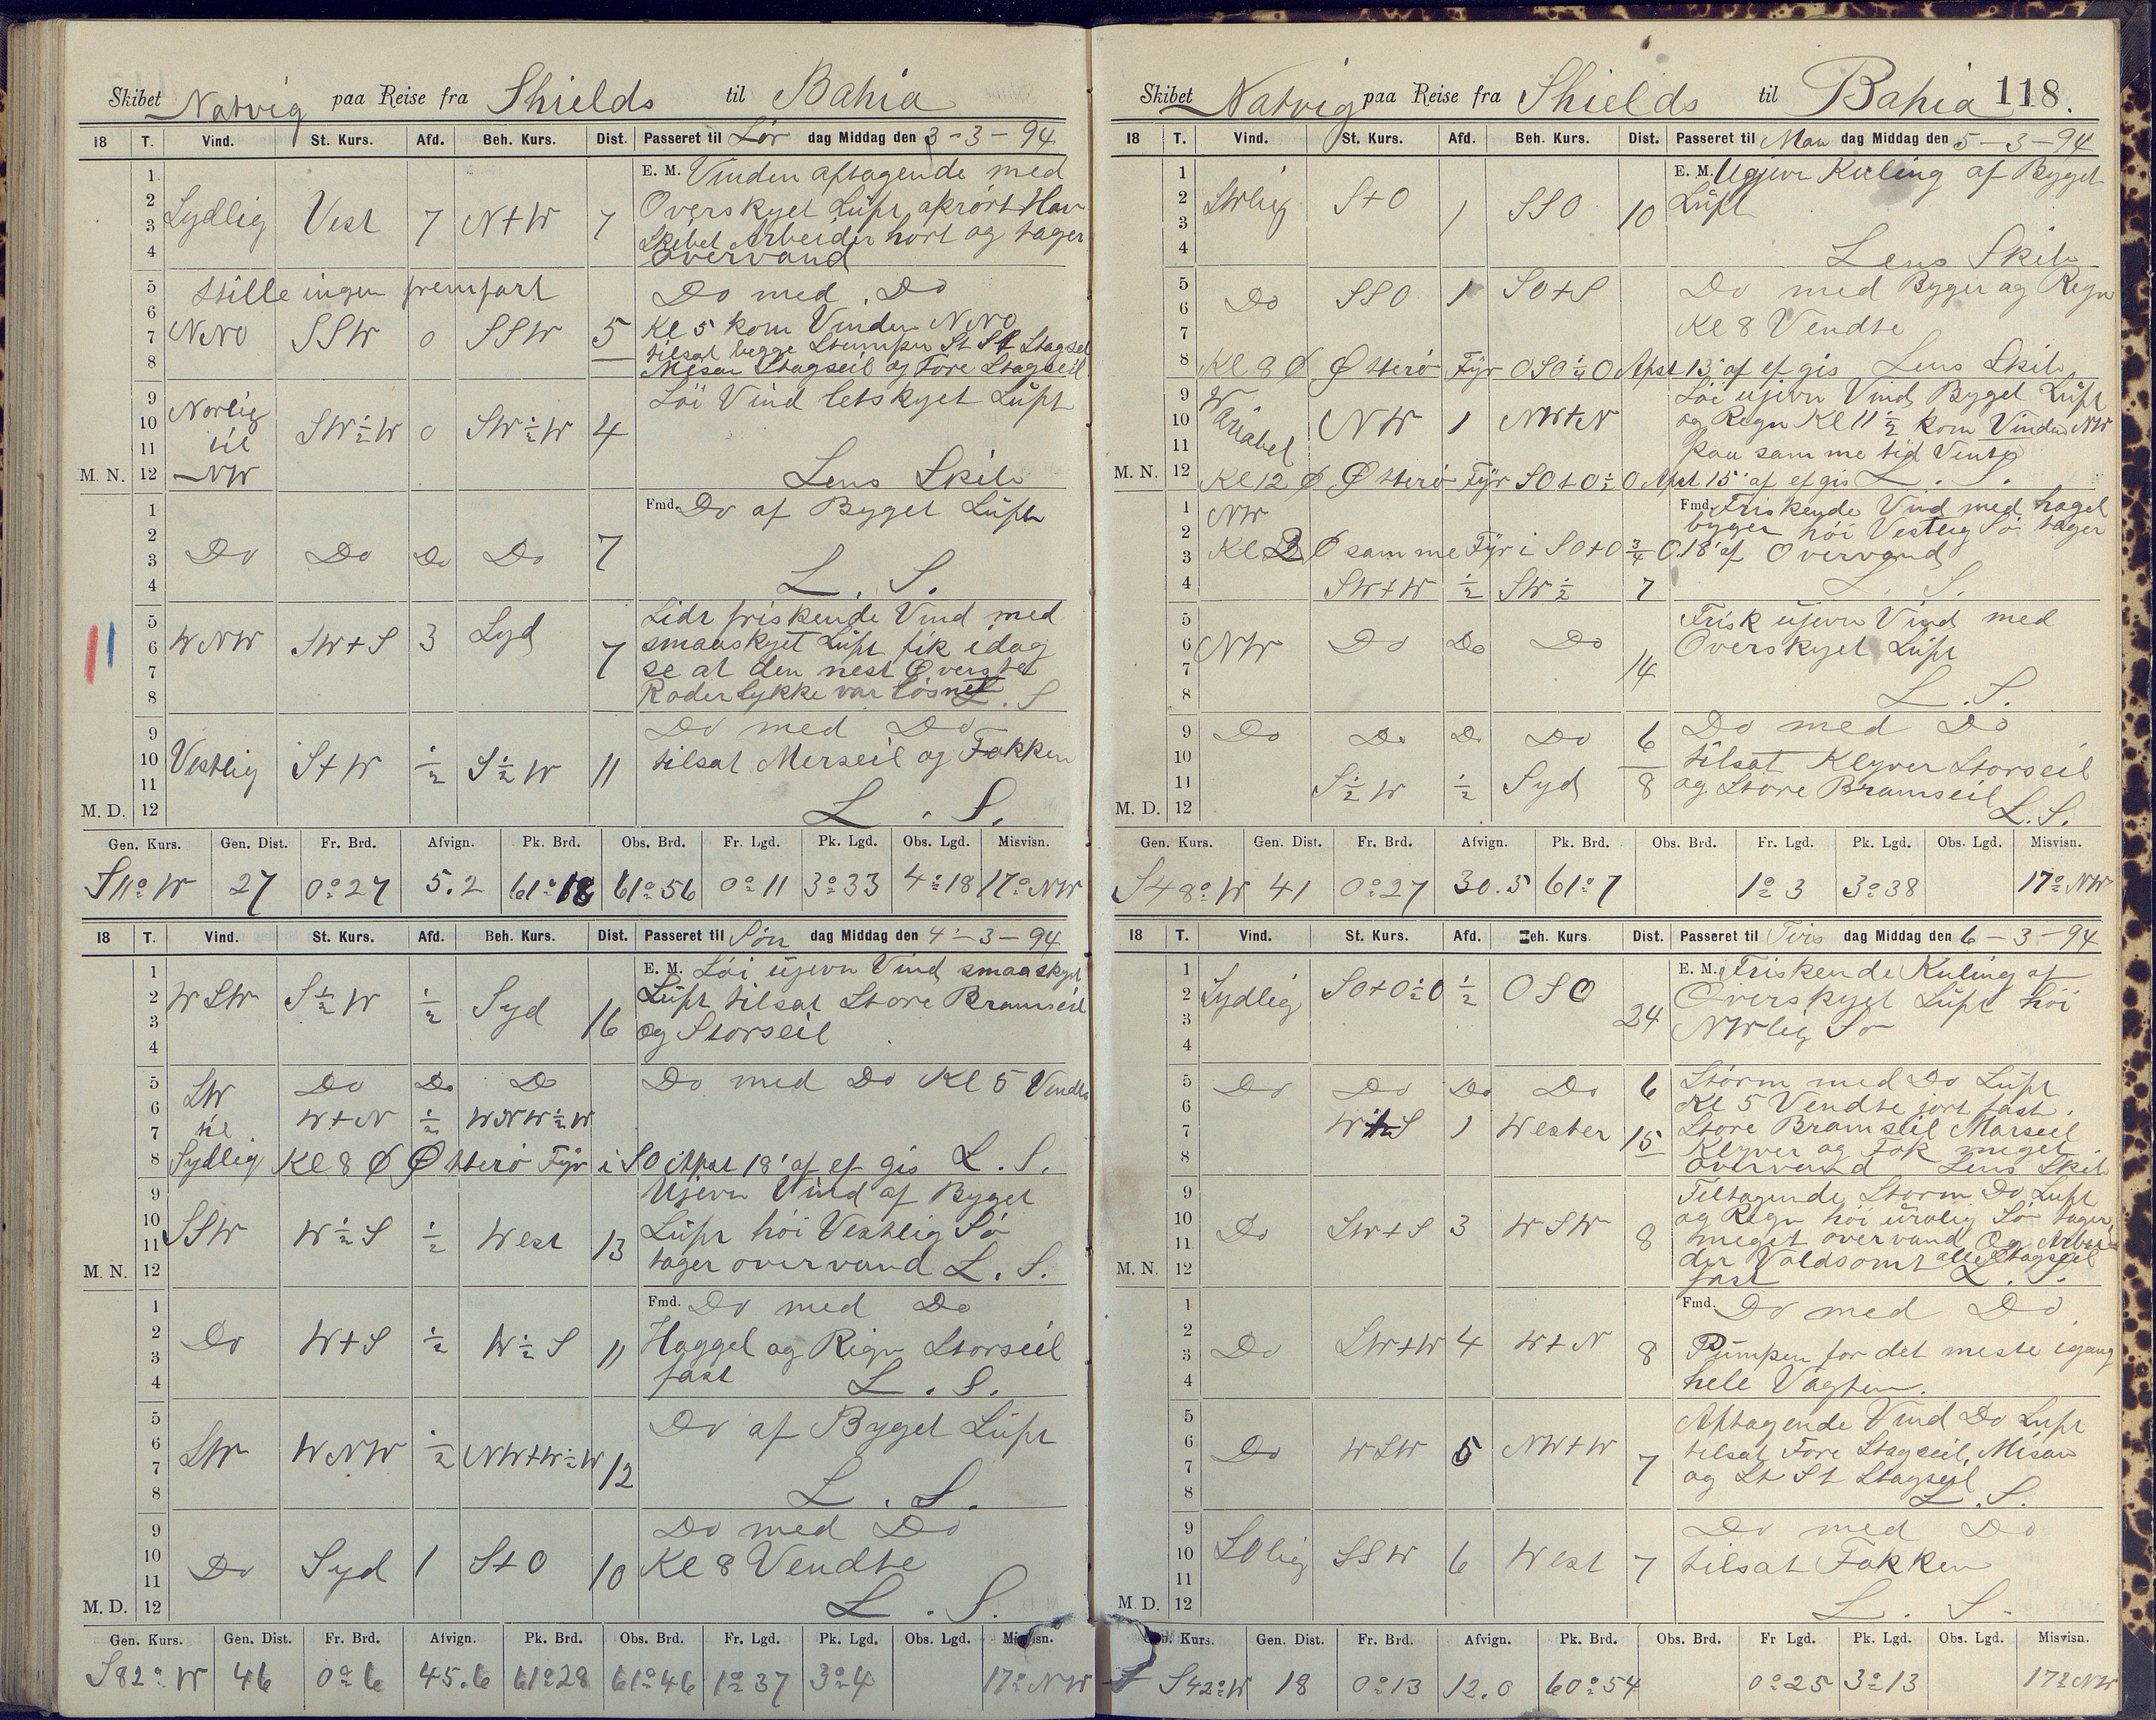 Skibet Natvig paa Reise fra Shields til Bahia
18 T. Vind. St. Kurs. Afd. Beh. Kurs. Dist. Passeret til Lør dag Middag den 3-3-94
1 2 3 4
Sydlig Vest 7 N+W 7
E. M. Vinden aftagende med
Overskyet Luft, oprørt Hav
Skibet Arbeider hort og tager
overvand
5 6 7 8
Stille ingen fremfart
Do med Do
NNO SSW 0 SSW 5
Kl 5 kom Vinden NNO
tilsat begge Stumper St St Stagseil
Mesan Stagseil og Fore Stagseil
9 10 11 M. N. 12
Norlig til NW SW½W 0 SW½W 4
Löi Vind letskyet Luft
Lens Skib
1 2 3 4
Do Do Do Do 7
Fmd. Do af Byget Luft
L. S.
5 6 7 8
WNW SW+S 3 Syd 7
Lidt friskende Vind med
smaaskyet Luft fik idag
se at den nest Øverste
Roderlykke var løsnet L. S
9 10 11 M. D. 12
Vestlig S+W ½ S½W 11
Do med Do
tilsat Merseil og Fokken
L. S.
Gen. Kurs. Gen. Dist. Fr. Brd. Afvign. Pk. Brd. Obs. Brd. Fr. Lgd. Pk. Lgd. Obs. Lgd. Misvisn.
S11°W 27 0°27 5.2 61°18 61°56 0°11 3°33 4°18 17°NW
18 T. Vind. St. Kurs. Afd. Beh. Kurs. Dist. Passeret til Søn dag Middag den 4-3-94
1 2 3 4
WSW S½W ½ Syd 16
E. M. Löi ujevn Vind smaaskyet
Luft tilsat Store Bramseil
og Storseil
5 6 7 8
SW Do Do Do
Do med Do Kl 5 Vendte
til W+N ½ WNW½W
Sydlig Kl 8 Ø Østterö Fyr i SO Apst 18' af ef gis L. S.
9 10 11 M. N. 12
SSW W½S ½ West 13
Ujevn Vind af Byget
Luft höi Vestlig Sö
tager overvand L. S.
1 2 3 4
Do W+S ½ W½S 11
Fmd. Do med Do
Haggel og Rign Storseil
fast L. S.
5 6 7 8
SW WNW ½ NW+W½W 12
Do af Byget Luft
L. S.
9 10 11 M. D. 12
Do Syd 1 S+O 10
Do med Do
Kl 8 Vendte
L. S.
Gen. Kurs. Gen. Dist. Fr. Brd. Afvign. Pk. Brd. Obs. Brd. Fr. Lgd. Pk. Lgd. Obs. Lgd. Misvisn.
S82°W 46 0°6 45.6 61°28 61°46 1°37 3°4 17°NW
Skibet Natvig paa Reise fra Shields til Bahia 118.
18 T. Vind. St. Kurs. Afd. Beh. Kurs. Dist. Passeret til Man dag Middag den 5-3-94
1 2 3 4
SWlig S+O 1 SSO 10
E. M. Ugjevn Kuling af Byget
Luft
Lens Skib
5 6 7 8
Do SSO 1 SO+S
Do med Byger og Regn
Kl 8 Vendte
Kl 8 Ø Østterö Fyr OSO¼O Apst 13' af ef gis Lens Skib
9 10 11 M. N. 12
Wariabel NW 1 NW+N
Löi ujevn Vind Byget Luft
og Regn Kl 11½ kom Vinden NW
paa samme tid Vente
Kl 12 Ø Østterö Fyr SO+O½O Apst 15' af ef gis L. S.
1 2 3 4
NW
Fmd. Friskende Vind med hagel
bygger höi Vestlig Sö tager
Kl Ø samme Fyr i SO+O¾O 18' af Overvand
SW+W ½ SW½ 7
L. S.
5 6 7 8
NW Do Do Do 14
Frisk ujevn Vind med
Overskyet Luft
L. S.
9 10 11 M. D. 12
Do Do Do Do 6
Do med Do
tilsat Klyver Storseil
S½W ½ Syd 8
og Store Bramseil L. S.
Gen. Kurs. Gen. Dist. Fr. Brd. Afvign. Pk. Brd. Obs. Brd. Fr. Lgd. Pk. Lgd. Obs. Lgd. Misvisn.
S48°W 41 0°27 30.5 61°7 1°3 3°38 17°NW
18 T. Vind. St. Kurs. Afd. Beh. Kurs. Dist. Passeret til Tirs dag Middag den 6-3-94
1 2 3 4
Sydlig SO+O½O ½ OSO 24
E. M. Friskende Kuling af
Overskyet Luft höi
NWlig Sö
5 6 7 8
Do Do Do Do 6
Storm med Do Luft
Kl 5 Vendte jort fast
W+S 1 Wester 15
Store Bramseil Merseil
Klyver og Fok meget
overvand Lens Skib
9 10 11 M. N. 12
Do SW+S 3 WSW 8
Tiltagende Storm Do Luft
og Regn höi urolig Sö tager
meget overvand Og Arbei=
der Voldsomt alle Stagseil
fast L. S.
1 2 3 4
Do SW+W 4 W+N 8
Fmd. Do med Do
Pumpen for det meste igang
hele Vagten.
5 6 7 8
Do WSW 5 NW+W 7
Aftagende Vind Do Luft
tilsat Fore Stagseil, Misan
og St St Stagseil
L. S.
9 10 11 M. D. 12
SOlig SSW 6 West 7
Do med Do
tilsat Fokken
L. S.
Gen. Kurs. Gen. Dist. Fr. Brd. Afvign. Pk. Brd. Obs. Brd. Fr Lgd. Pk. Lgd. Obs. Lgd. Misvisn.
S42°W 18 0°13 12.0 60°54 0°25 3°13 17°NW